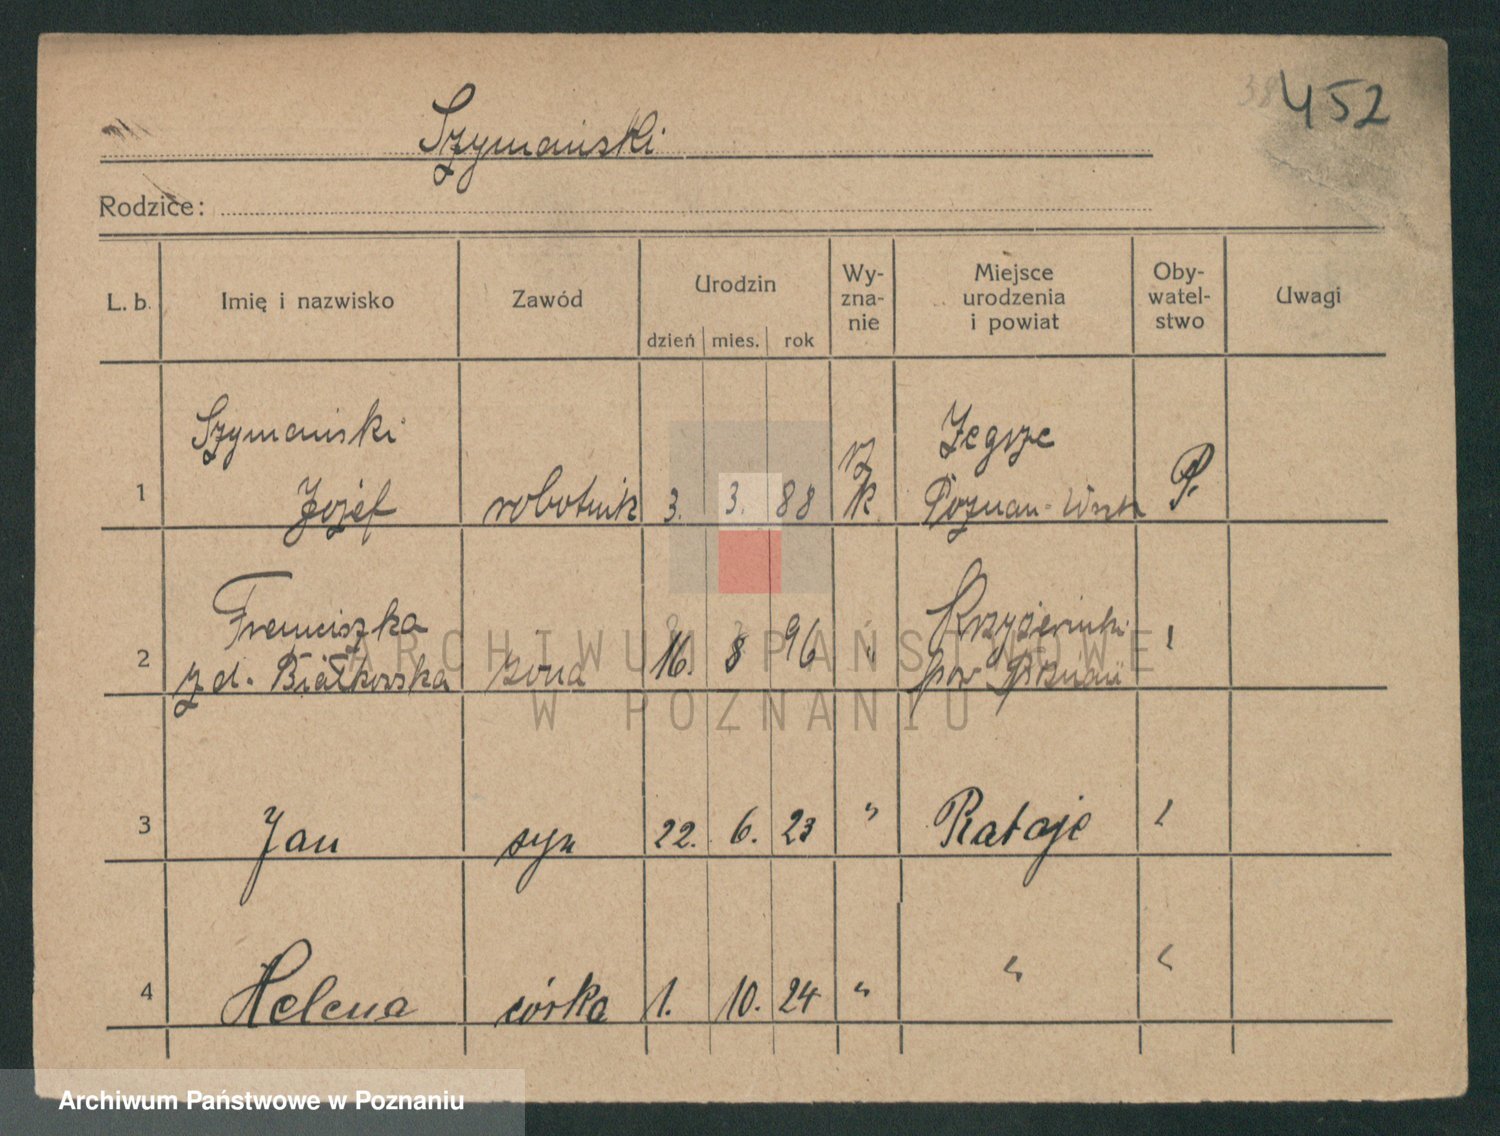 452
Szymański
Rodzice:
L. b.
Imię i nazwisko
Zawód
Urodzin
dzień
mies.
rok
Wy-
zna-
nie
Miejsce
urodzenia
i powiat
Oby-
watel-
stwo
Uwagi
Szymański
1 Józef robotnik 3. 3. 88 rz k. Żegrze P.
Poznań-Wsch
Franciszka 16. 8 96 "
2 z d. Białkowska żona
pow. Poznań
3 Jan syn 22. 6. 23 " Rataje "
4 Helena córka 1. 10. 24 " " "
ARCHIWUM PAŃSTWOWE
W POZNANIU
Archiwum Państwowe w Poznaniu